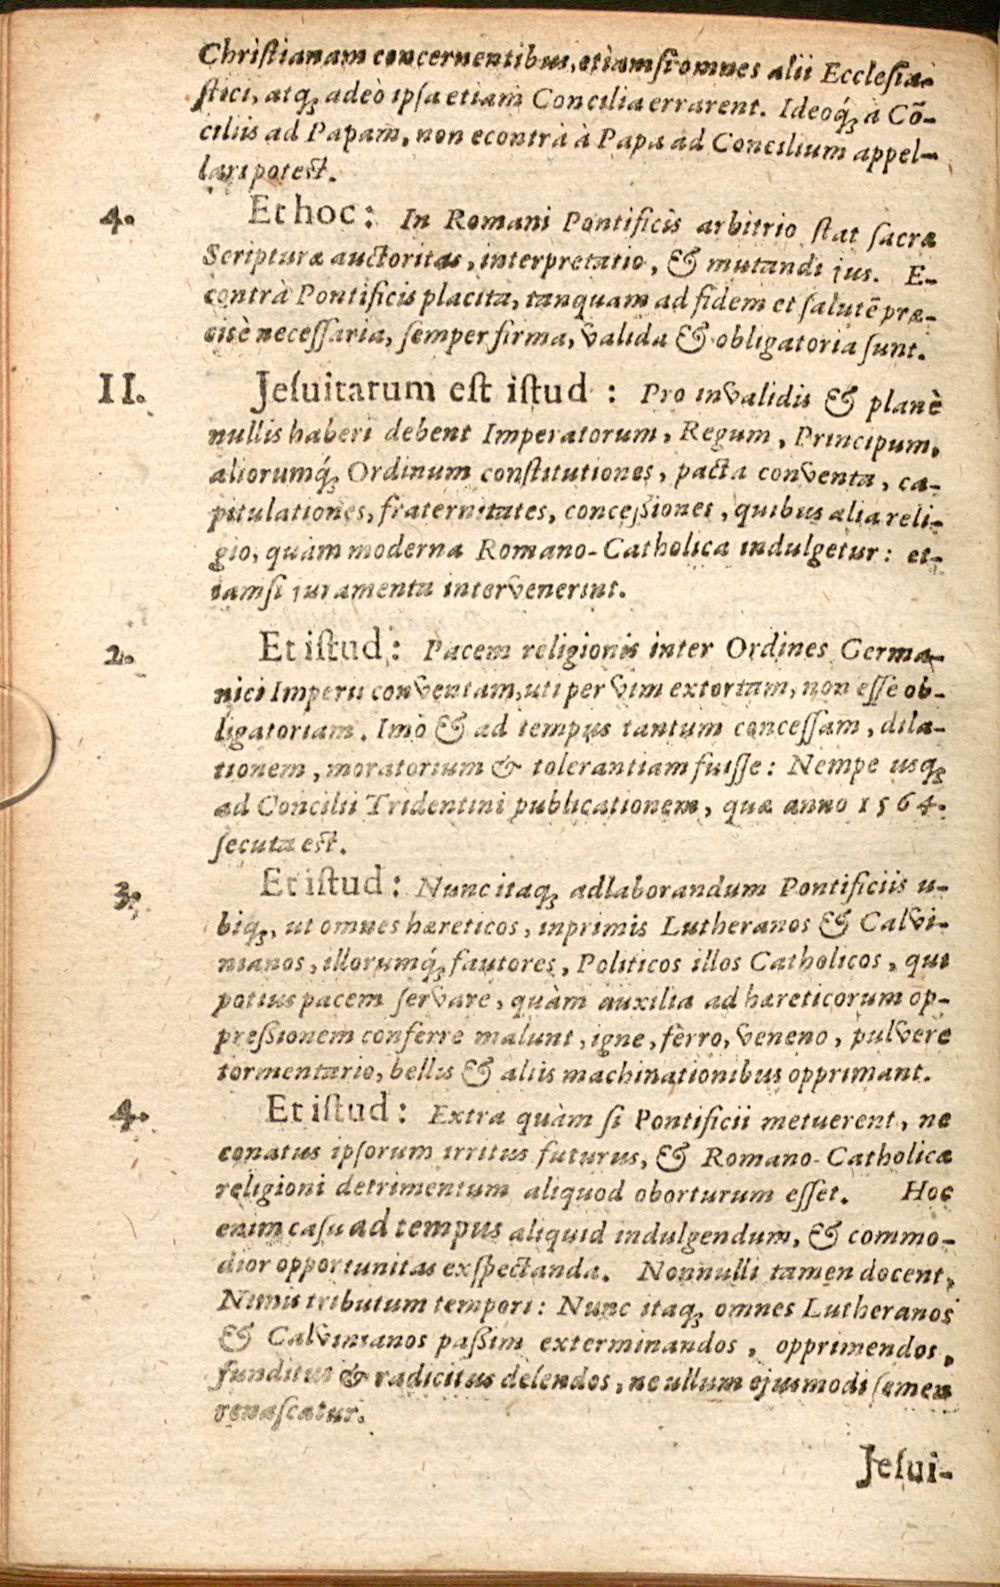 Chriſtianam concernentibus, etiamſi omnes alii Eccleſia-
ſtici, atq; adeò ipſa etiam Concilia errarent. Ideoq́; à Cõ-
ciliis ad Papam, non econtrà à Papa ad Concilium appel-
lari poteſt.
4. Et hoc: In Romani Pontificis arbitrio ſtat ſacræ
Scripturæ auctoritas, interpretatio, & mutandi jus. E-
contrà Pontificis placita, tanquam ad fidem et ſalutẽ præ-
cisè neceſſaria, ſemper firma, valida & obligatoria ſunt.
II. Jeſuitarum eſt iſtud: Pro invalidis & planè
nullis haberi debent Imperatorum, Regum, Principum,
aliorumq́; Ordinum conſtitutiones, pacta conventa, ca-
pitulationes, fraternitates, conceſsiones, quibus alia reli-
gio, quàm moderna Romano-Catholica indulgetur: et-
iamſi juramenta intervenerint.
2. Et iſtud: Pacem religionis inter Ordines Germa-
nici Imperii conventam, uti per vim extortam, non eſſe ob-
ligatoriam. Imò & ad tempus tantum conceſſam, dila-
tionem, moratorium & tolerantiam fuiſſe: Nempe usq;
ad Concilii Tridentini publicationem, quæ anno 1564.
ſecuta eſt.
3. Et iſtud: Nunc itaq; adlaborandum Pontificiis u-
biq;, ut omnes hæreticos, inprimis Lutheranos & Calvi-
nianos, illorumq́; fautores, Politicos illos Catholicos, qui
potius pacem ſervare, quàm auxilia ad hæreticorum op-
preſsionem conferre malunt, igne, ferro, veneno, pulvere
tormentario, bellis & aliis machinationibus opprimant.
4. Et iſtud: Extra quàm ſi Pontificii metuerent, ne
conatus ipſorum irritus futurus, & Romano-Catholicæ
religioni detrimentum aliquod oborturum eſſet. Hoc
enim caſu ad tempus aliquid indulgendum, & commo-
dior opportunitas exſpectanda. Nonnulli tamen docent,
Nimis tributum tempori: Nunc itaq; omnes Lutheranos
& Calvinianos paſsim exterminandos, opprimendos,
funditus & radicitus delendos, ne ullum ejusmodi ſemen
renaſcatur.
Jeſui-